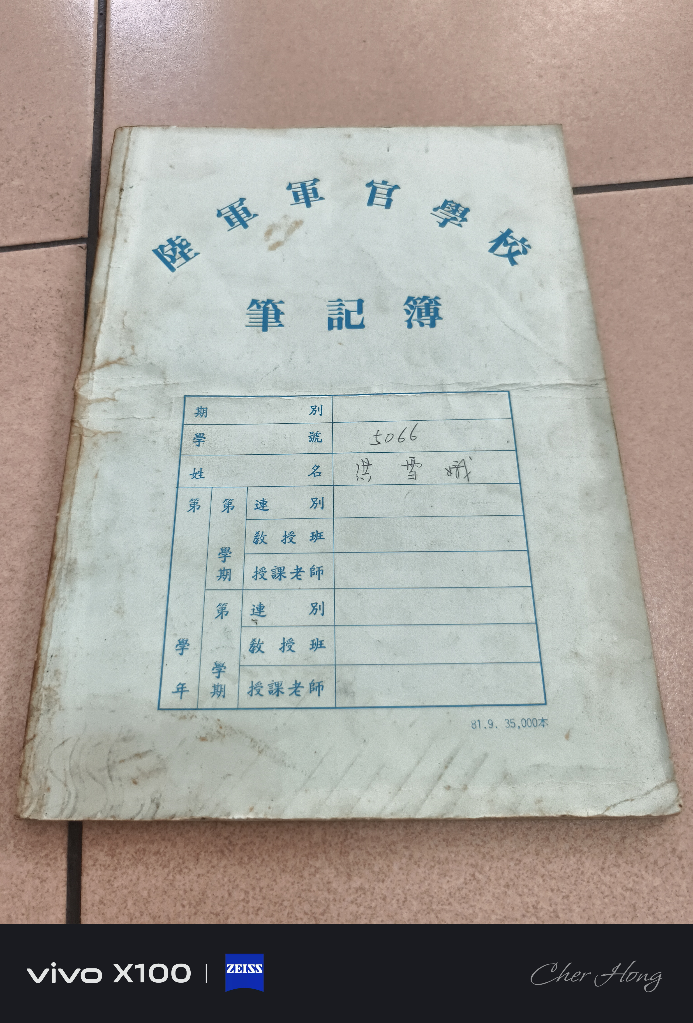 陸軍軍官學校
筆記簿
期別
學號 5066
姓名 洪雪娥
第 第 連別
教授班
學期 授課老師
第 連別
教授班
學年 學期 授課老師
81.9. 35,000本
vivo X100 | ZEISS Cher Hong